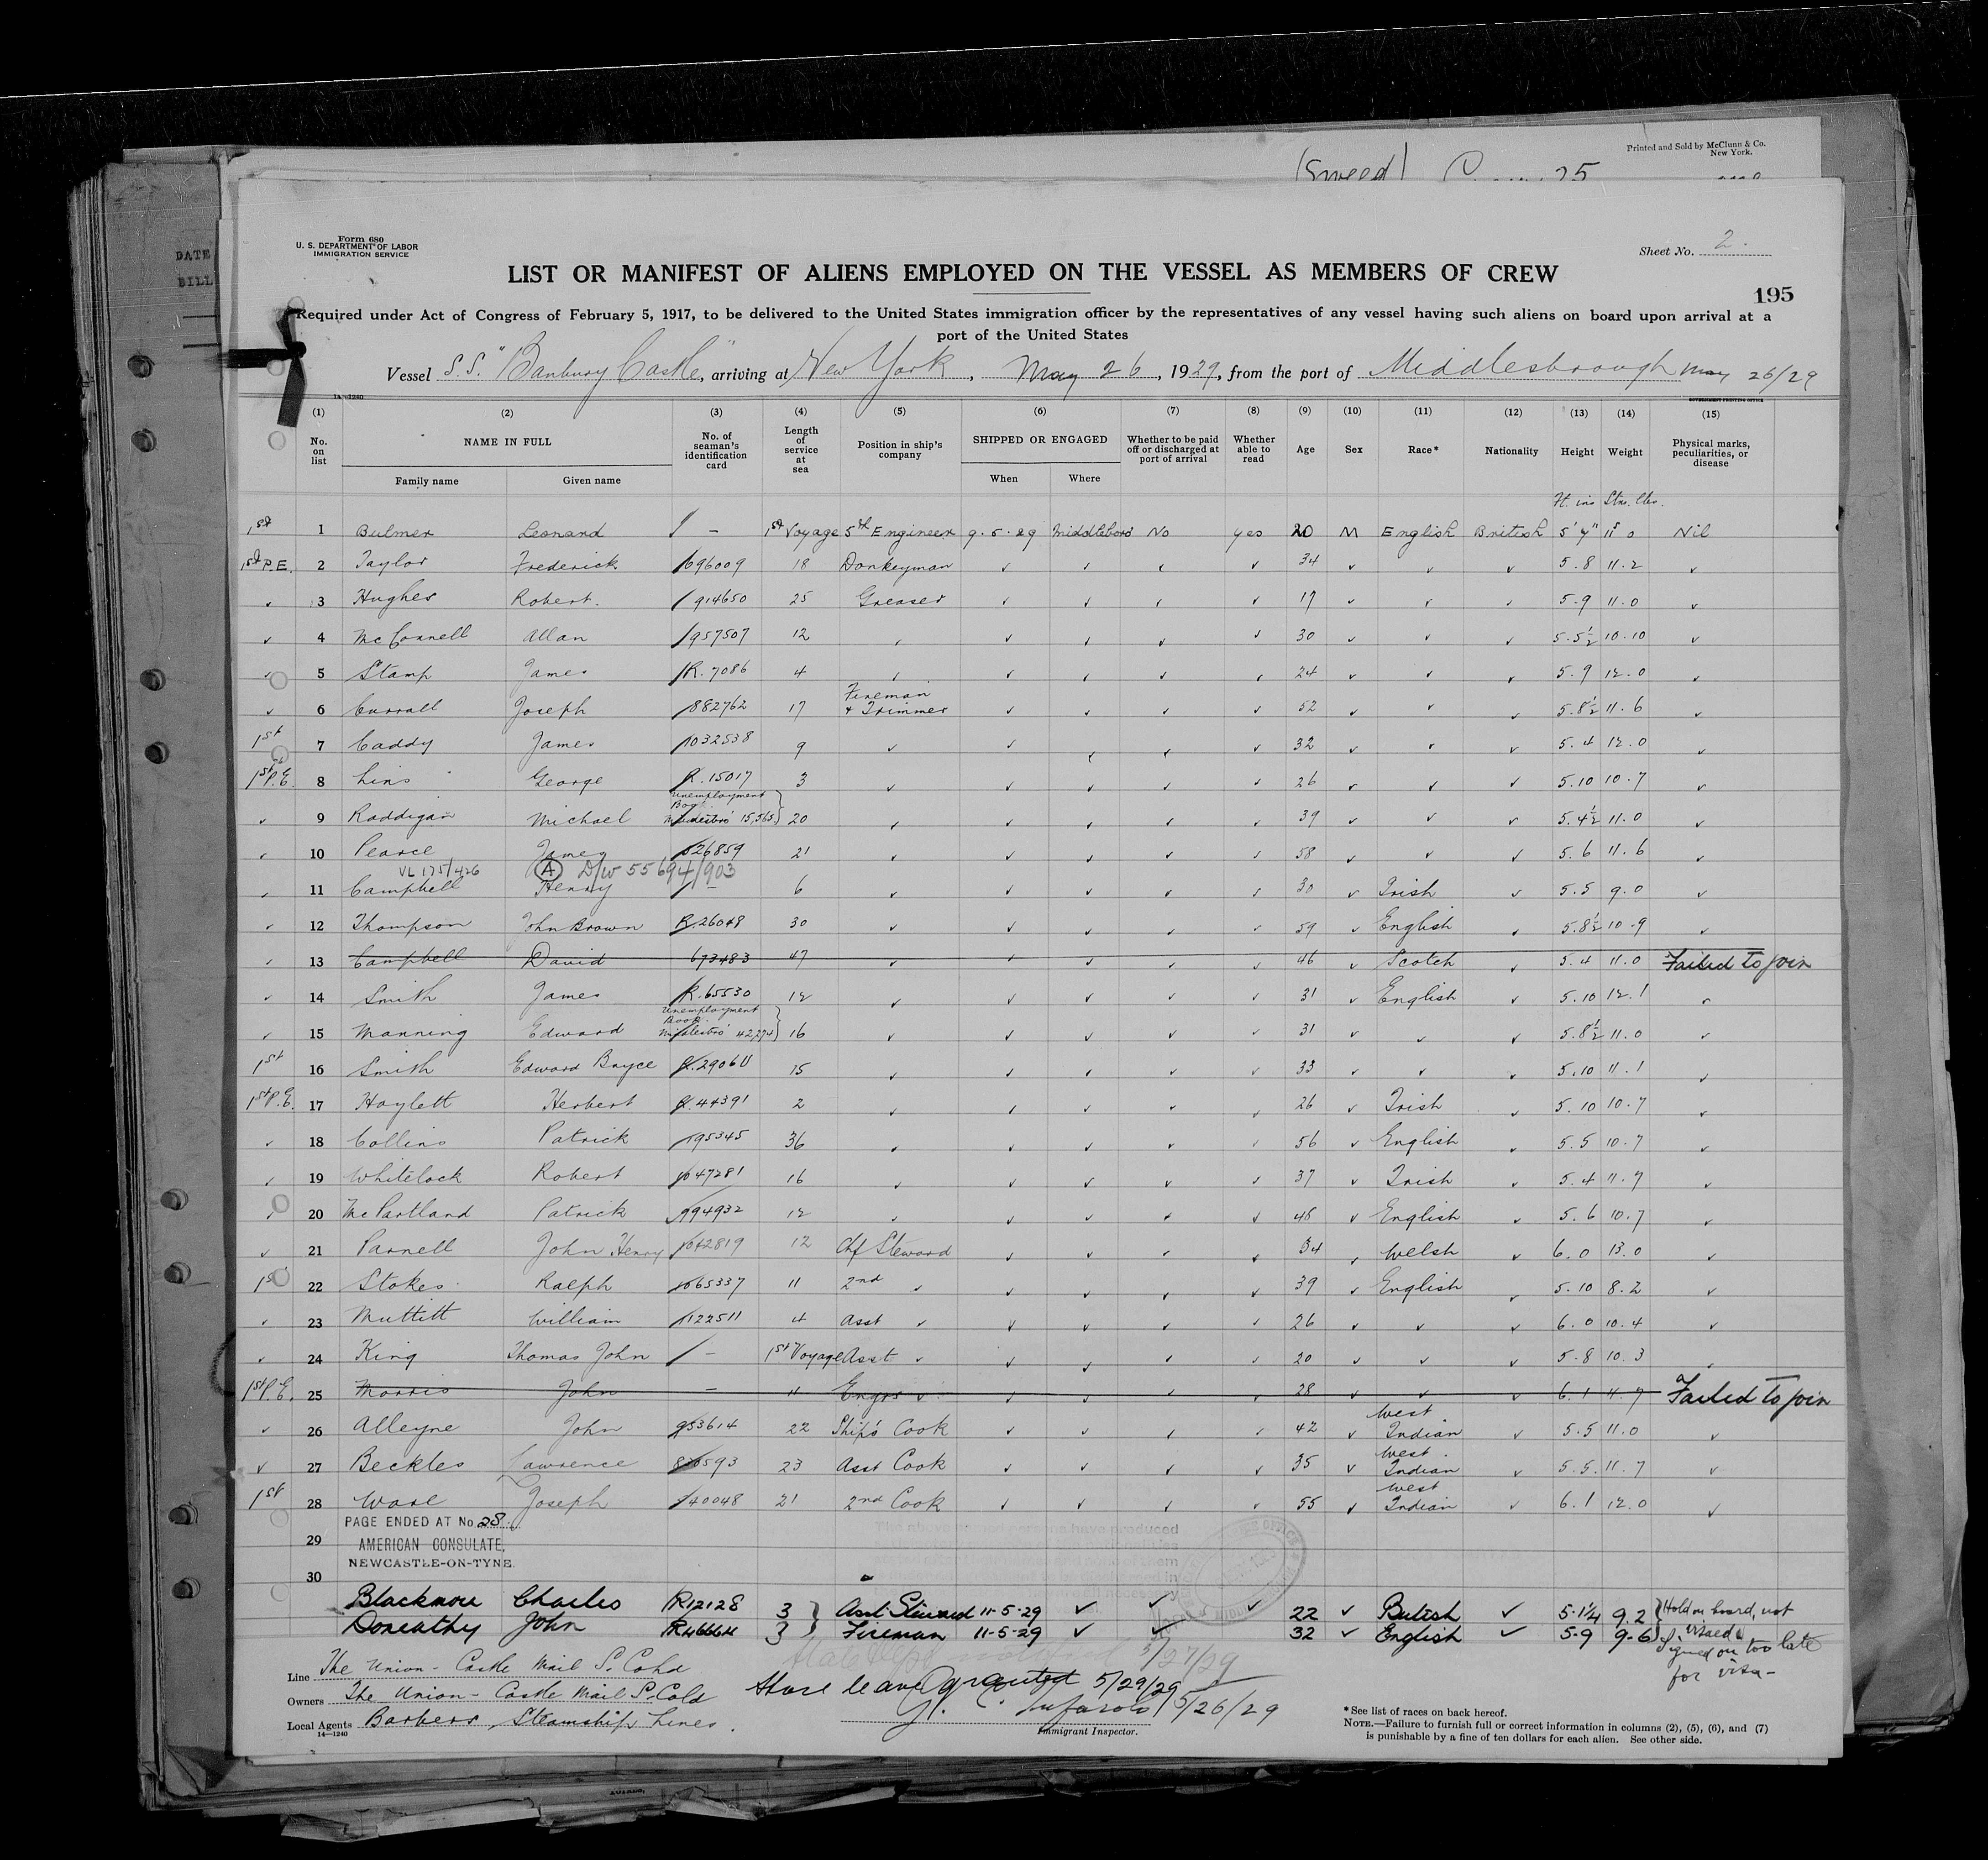 Printed and Sold by McClunn & Co.
New York.
DATE
BILL
Form 680
U. S. DEPARTMENT OF LABOR
IMMIGRATION SERVICE
Sheet No. 2.
LIST OR MANIFEST OF ALIENS EMPLOYED ON THE VESSEL AS MEMBERS OF CREW
195
Required under Act of Congress of February 5, 1917, to be delivered to the United States immigration officer by the representatives of any vessel having such aliens on board upon arrival at a
port of the United States
Vessel S.S. "Banbury Castle", arriving at New York, May 26, 1929, from the port of Middlesbrough May 26/29
14—1240
(1) (2) (3) (4) (5) (6) (7) (8) (9) (10) (11) (12) (13) (14) (15)
No. on list NAME IN FULL Family name Given name No. of seaman's identification card Length of service at sea Position in ship's company SHIPPED OR ENGAGED When Where Whether to be paid off or discharged at port of arrival Whether able to read Age Sex Race* Nationality Height Weight Physical marks, peculiarities, or disease
Ft. ins Sto. lbs.
1st 1 Bulmer Leonard – 1st Voyage 5th Engineer 9.5.29 Middlesboro No yes 20 M English British 5'4" 11 0 Nil
1st P.E. 2 Taylor Frederick 696009 18 Donkeyman ✓ ✓ ✓ ✓ 34 ✓ ✓ ✓ 5.8 11.2 ✓
✓ 3 Hughes Robert. 914650 25 Greaser ✓ ✓ ✓ ✓ ✓ ✓ ✓ 5.9 11.0 ✓
✓ 4 McConnell Allan 957507 12 ✓ ✓ ✓ ✓ ✓ 30 ✓ ✓ ✓ 5.5½ 10.10 ✓
✓ 5 Stamp James R.7086 4 ✓ ✓ ✓ ✓ ✓ 24 ✓ ✓ ✓ 5.9 12.0 ✓
✓ 6 Currall Joseph 882762 17 Fireman & Trimmer ✓ ✓ ✓ ✓ 52 ✓ ✓ ✓ 5.8½ 11.6 ✓
1st 7 Caddy James 1032538 9 ✓ ✓ ✓ ✓ ✓ 32 ✓ ✓ ✓ 5.4 12.0 ✓
1st P.E. 8 Lins George R.15017 3 ✓ ✓ ✓ ✓ ✓ 26 ✓ ✓ ✓ 5.10 10.7 ✓
✓ 9 Raddigan Michael Unemployment Book. Middlesbro' 15,565 20 ✓ ✓ ✓ ✓ ✓ 39 ✓ ✓ ✓ 5.4½ 11.0 ✓
✓ 10 Pearce James 526859 21 ✓ ✓ ✓ ✓ ✓ 58 ✓ ✓ ✓ 5.6 11.6 ✓
VL 175/426 (A) D/W 55694/903
✓ 11 Campbell Henry – 6 ✓ ✓ ✓ ✓ ✓ 30 ✓ Irish ✓ 5.5 9.0 ✓
✓ 12 Thompson John Brown R.26048 30 ✓ ✓ ✓ ✓ ✓ 59 ✓ English ✓ 5.8½ 10.9 ✓
✓ 13 Campbell David 673483 47 ✓ ✓ ✓ ✓ ✓ 46 ✓ Scotch ✓ 5.4 11.0 Failed to join
✓ 14 Smith James R.65530 12 ✓ ✓ ✓ ✓ ✓ 31 ✓ English ✓ 5.10 12.1 ✓
✓ 15 Manning Edward Unemployment Book. Middlesbro' 42,274 16 ✓ ✓ ✓ ✓ ✓ 31 ✓ ✓ ✓ 5.8½ 11.0 ✓
1st 16 Smith Edward Bryce R.29061 15 ✓ ✓ ✓ ✓ ✓ 33 ✓ ✓ ✓ 5.10 11.1 ✓
1st P.E. 17 Hoylett Herbert R.44391 2 ✓ ✓ ✓ ✓ ✓ 26 ✓ Irish ✓ 5.10 10.7 ✓
✓ 18 Collins Patrick 595345 36 ✓ ✓ ✓ ✓ ✓ 56 ✓ English ✓ 5.5 10.7 ✓
✓ 19 Whitelock Robert 1047281 16 ✓ ✓ ✓ ✓ ✓ 37 ✓ Irish ✓ 5.4 11.7 ✓
✓ 20 McPartland Patrick 994932 12 ✓ ✓ ✓ ✓ ✓ 48 ✓ English ✓ 5.6 10.7 ✓
✓ 21 Parnell John Henry 1042819 12 Chf Steward ✓ ✓ ✓ ✓ 34 ✓ Welsh ✓ 6.0 13.0 ✓
1st 22 Stokes Ralph 1065337 11 2nd ✓ ✓ ✓ ✓ ✓ 39 ✓ English ✓ 5.10 8.2 ✓
✓ 23 Muttitt William 1122511 4 Asst ✓ ✓ ✓ ✓ ✓ 26 ✓ ✓ ✓ 6.0 10.4 ✓
✓ 24 King Thomas John – 1st Voyage Asst ✓ ✓ ✓ ✓ ✓ 20 ✓ ✓ ✓ 5.8 10.3 ✓
1st P.E. 25 Morris John – " Engrs ✓ ✓ ✓ ✓ ✓ 28 ✓ ✓ ✓ 6.1 11.7 Failed to join
✓ 26 Alleyne John 953614 22 Ship's Cook ✓ ✓ ✓ ✓ 42 ✓ West Indian ✓ 5.5 11.0 ✓
✓ 27 Beckles Lawrence 836593 23 Asst Cook ✓ ✓ ✓ ✓ 35 ✓ West Indian ✓ 5.5. 11.7 ✓
1st 28 Joseph 740048 21 2nd Cook ✓ ✓ ✓ ✓ 55 ✓ West Indian ✓ 6.1 12.0 ✓
PAGE ENDED AT No. 28
29 AMERICAN CONSULATE,
NEWCASTLE-ON-TYNE.
30
Blackmore Charles R12128 3 Asst. Steward 11-5-29 ✓ ✓ ✓ 22 ✓ British ✓ 5-1¼ 9.2 Hold on board, not visaed
Doneathy John R46664 3 Fireman 11-5-29 ✓ ✓ 32 ✓ English ✓ 5-9 9-6 Signed on too late for visa-
5/27/29
Line The Union-Castle Mail S.Co Ltd
Shore leave granted 5/29/29
Owners The Union-Castle Mail S.Co Ltd
5/26/29
Local Agents Barbers Steamship Lines.
14—1240
Immigrant Inspector.
*See list of races on back hereof.
NOTE.—Failure to furnish full or correct information in columns (2), (5), (6), and (7)
is punishable by a fine of ten dollars for each alien. See other side.